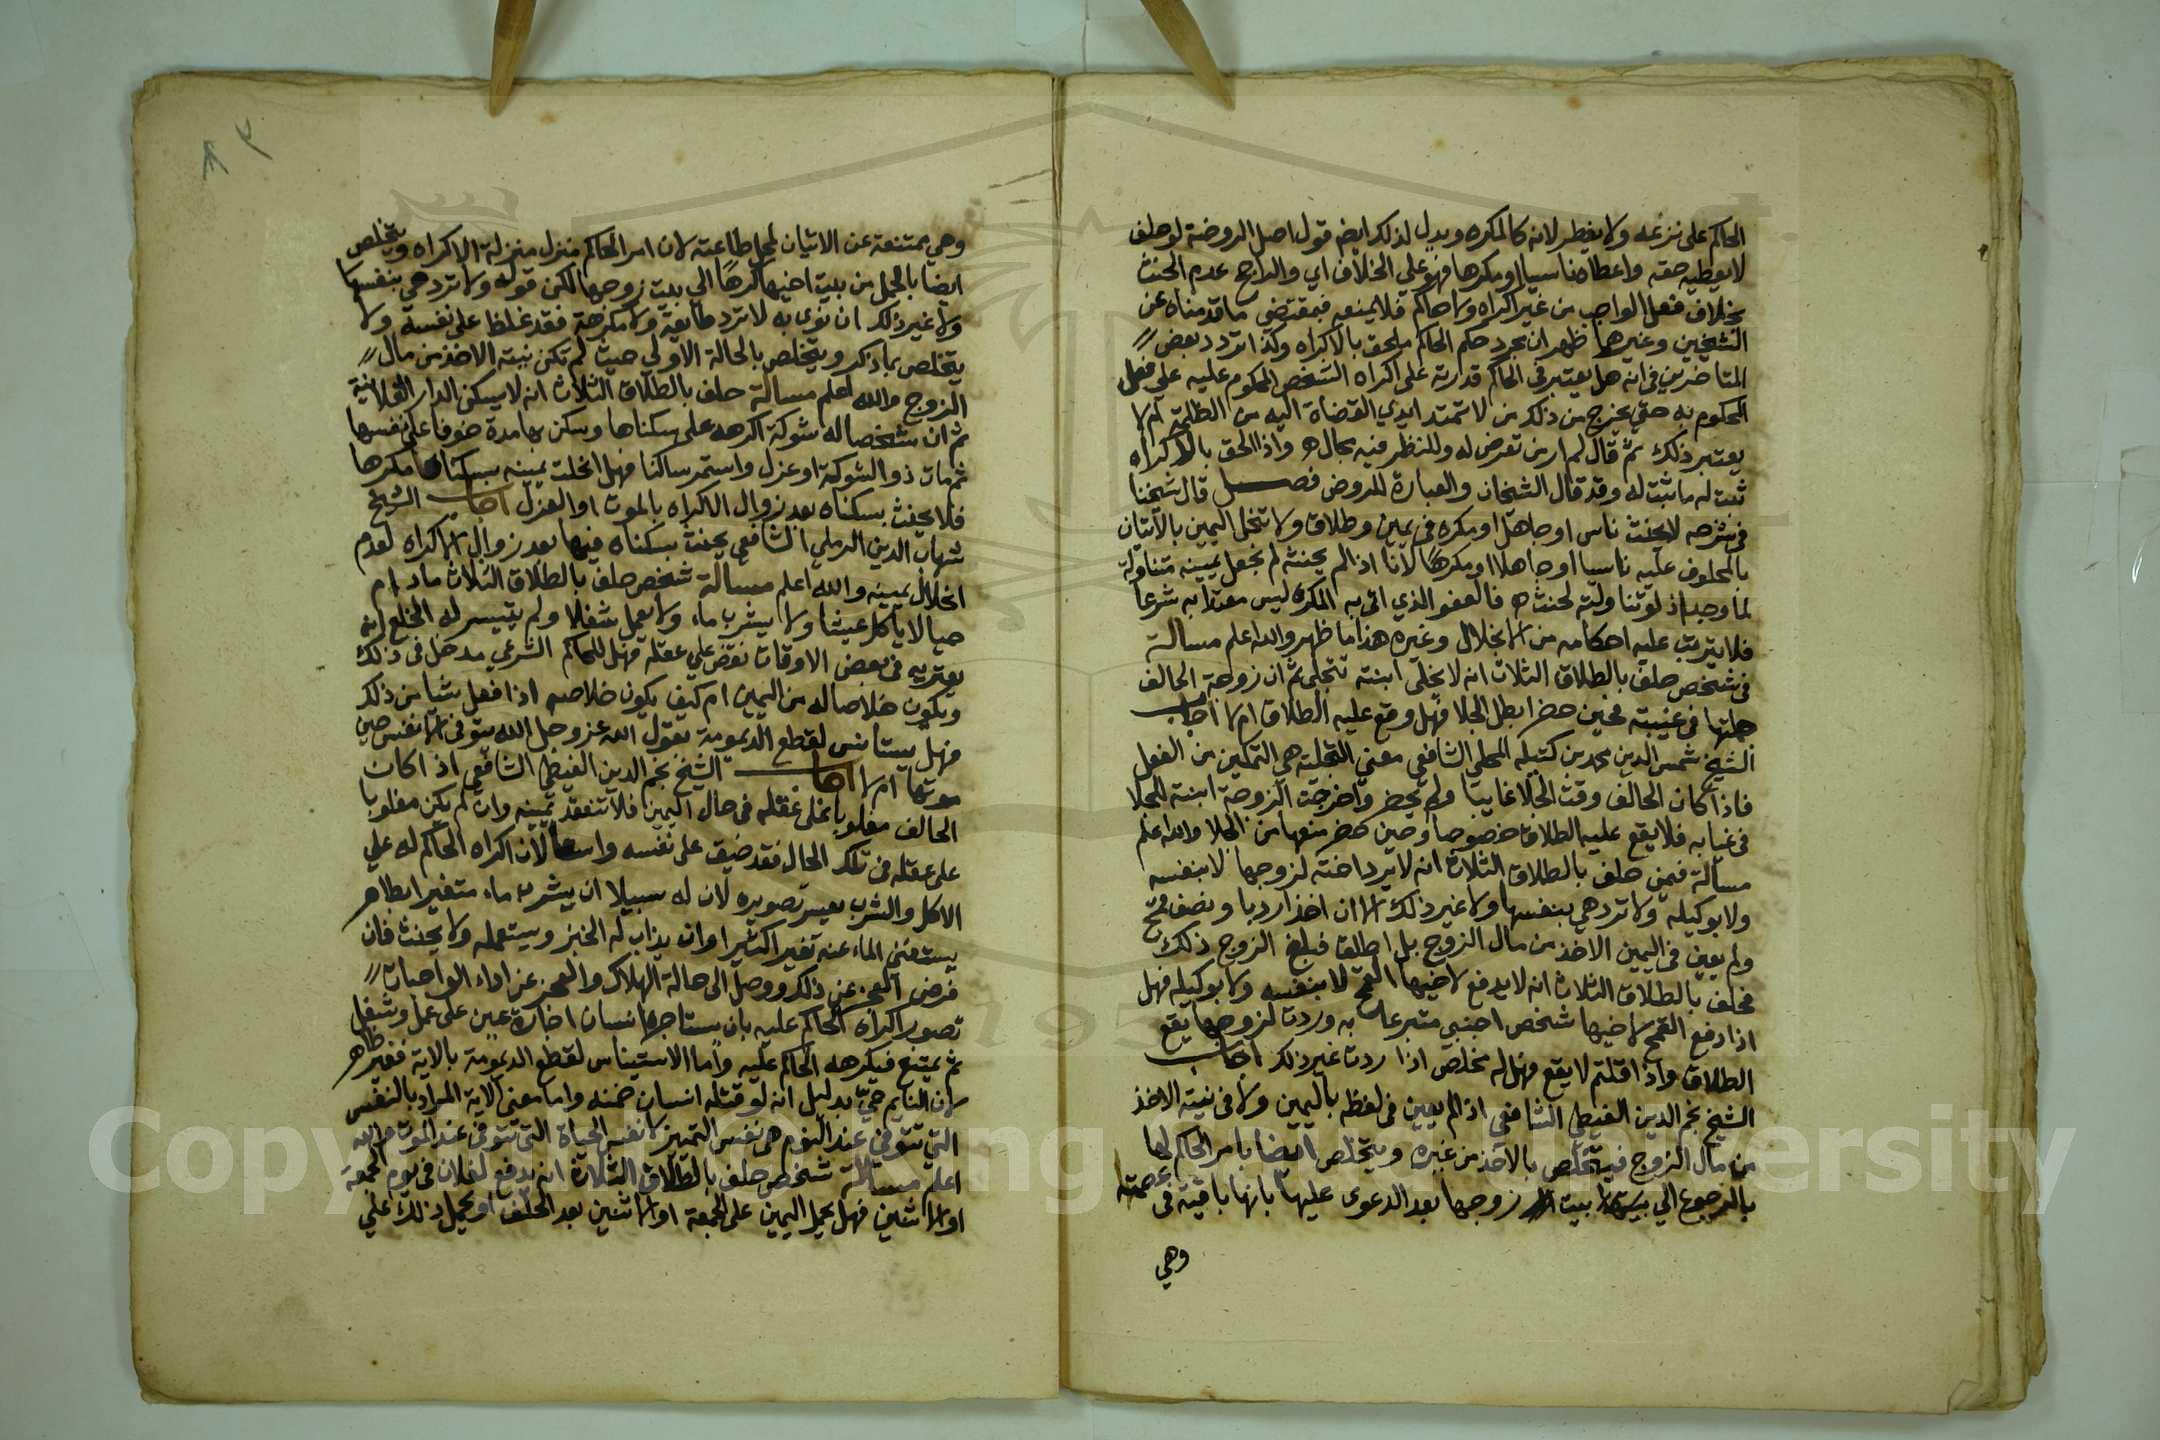 الحاكم على نزعه ولا يفطر لانه كالمكره ويدل لذلك ايضا قول اصل الروضة لو حلف
لا يعطيه حقه واعطاه ناسيا او مكرها فهو على الخلاف اي والراجح عدم الحنث
بخلاف فعل الواجب من غير اكراه ولا حاكم فلا يمنعه فبمقتضى ما قدمناه عن
الشيخين وغيرهما ظهر ان مجرد حكم الحاكم ملحق بالاكراه وكذا تردد بعض
المتاخرين في انه هل يعتبر في الحاكم قدرته على اكراه الشخص المحكوم عليه على فعل
المحكوم به حتى يخرج من ذلك من لا تمتد ايدي القضاة اليه من الظلمة ام لا
يعتبر ذلك ثم قال لم ار من تعرض له وللنظر فيه مجال ه واذا الحق بالاكراه
ثبت له ما ثبت له وقد قال الشيخان والعبارة للروض فصل قال شيخنا
في شرحه لا يحنث ناس او جاهل او مكره في يمين وطلاق ولا تنحل اليمين بالاتيان
بالمحلوف عليه ناسيا او جاهلا او مكرها لانا اذا لم يحنثه لم نجعل يمينه متناولة
لما وجد اذ لو تناولته لحنث ه فالعفو الذي اتى به المكره ليس معتدا به شرعا
فلا يترتب عليه احكامه من الانحلال وغيره هذا ما ظهر والله اعلم مسالة
في شخص حلف بالطلاق الثلاث انه لا يخلي ابنته تتجلى ثم ان زوجة الحالف
جلتها في غيبته فحين حضر ابطل الجلا فهل وقع عليه الطلاق ام لا اجاب
الشيخ شمس الدين محمد بن كتيله المحلي الشافعي معنى التخلية هي التمكين من الفعل
فاذا كان الحالف وقت الجلا غايبا ولم يحضر واخرجت الزوجة ابنته للجلا
في غيابه فلا يقع عليه الطلاق خصوصا وحين حضر منعها من الجلا والله اعلم
مسالة فيمن حلف بالطلاق الثلاث انه لا يرد اخته لزوجها لا بنفسه
ولا بوكيله ولا ترد هي بنفسها ولا غير ذلك الا ان اخذ اردبا ونصف قمح
ولم يعين في اليمين الاخذ من مال الزوج بل اطلقا فبلغ الزوج ذلك
فحلف بالطلاق الثلاث انه لا يدفع لاخيها القمح لا بنفسه ولا بوكيله فهل
اذا دفع القمح لاخيها شخص اجنبي متبرعا به وردت لزوجها يقع
الطلاق واذا قلتم لا يقع فهل له مخلص اذا ردت غير ذلك اجاب
الشيخ نجم الدين الغيطي الشافعي اذا لم يعين في لفظه باليمين ولا في نيته الاخذ
من مال الزوج فيتخلص بالاخذ من غيره ويتخلص ايضا بامر الحاكم لها
بالرجوع الى بيت زوجها بعد الدعوى عليها بانها باقية في عصمته
وهي
وهي ممتنعة عن الاتيان لمحل طاعته لان امر الحاكم منزل منزلة الاكراه ويتخلص
ايضا بالحمل من بيت اخيها كرها الى بيت زوجها لكن قوله ولا ترد هي بنفسها
ولا غير ذلك ان نوى به لا ترد طايعة ولا مكرهة فقد غلظ على نفسه ولا
يتخلص بما ذكر ويتخلص بالحالة الاولى حيث لم تكن نيته الاخذ من مال
الزوج والله اعلم مسالة حلف بالطلاق الثلاث انه لا يسكن الدار الفلانية
ثم ان شخصا له شوكة اكرهه على سكناها وسكن بها مدة خوفا على نفسها
ثم مات ذو الشوكة او عزل واستمر ساكنا فهل انحلت يمينه بسكناه مكرها
فلا يحنث بسكناه بعد زوال الاكراه بالموت او العزل اجاب الشيخ
شهاب الدين الرملي الشافعي يحنث بسكناه فيها بعد زوال الاكراه لعدم
انحلال يمينه والله اعلم مسالة شخص حلف بالطلاق الثلاث ما دام
حيا لا ياكل عيشا ولا يشرب ماء ولا يعمل شغلا ولم يتيسر له الخلع انه
يعتريه في بعض الاوقات نقض على عقله فهل للحاكم الشرعي مدخل في ذلك
ويكون خلاصا له من اليمين ام كيف يكون خلاصه اذا فعل شيا من ذلك
فهل يستانس لقطع الديمومة بقول الله عز وجل الله يتوفى الانفس حين
موتها ام لا اجاب الشيخ نجم الدين الغيطي الشافعي اذا كان
الحالف مغلوبا على عقله في حال اليمين فلا تنعقد يمينه وان لم يكن مغلوبا
على عقله في تلك الحال فقد ضيق على نفسه واسعا لان اكراه الحاكم له على
الاكل والشرب يعسر تصويره لان له سبيلا ان يشرب ماء متغيرا بطاهر
يستغني الماء عنه تغيرا كثيرا وان يذاب له الخبز ويستعمله ولا يحنث فان
فرض العجز عن ذلك ووصل الى حالة الهلاك والعجز عن اداء الواجبات
تصور اكراه الحاكم عليه بان يستاجره انسان اجارة عين على عمل وشغل
ثم يمتنع فيكرهه الحاكم عليه واما الاستيناس لقطع الديمومة بالاية فغير ظاهر
لان النايم حي بدليل انه لو قتله انسان ضمنه واما معنى الاية المراد بالنفس
التي تتوفى عند النوم هي نفس التمييز لا نفس الحياة التي تتوفى عند الموت والله
اعلم مسالة شخص حلف بالطلاق الثلاث انه يدفع لفلان في يوم الجمعة
او الاثنين فهل يحمل اليمين على الجمعة او الاثنين بعد الحلف او يحمل ذلك على
Copyright © King Saud University
1957